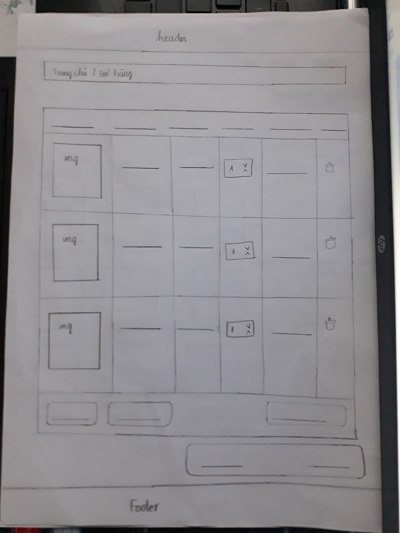 header
Trang chủ / Giỏ hàng
img
1
img
1
img
1
Footer